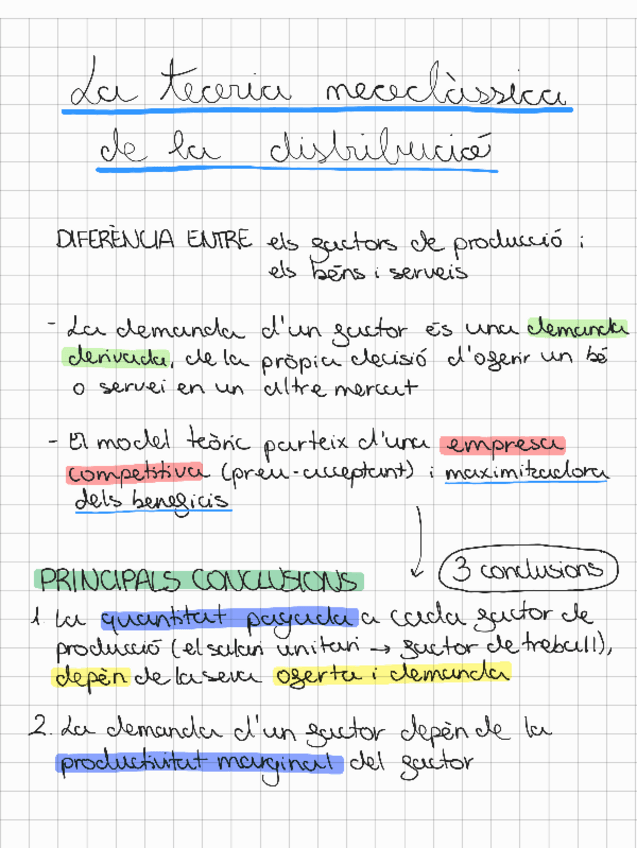 La teoria neoclàssica
de la distribució
DIFERÈNCIA ENTRE els factors de producció i
els béns i serveis
- La demanda d'un factor és una demanda
derivada, de la pròpia decisió d'oferir un bé
o servei en un altre mercat
- El model teòric parteix d'una empresa
competitiva (preu-acceptant) i maximitzadora
dels beneficis
3 conclusions
PRINCIPALS CONCLUSIONS
1. La quantitat pagada a cada factor de
producció (el salari unitari → factor de treball),
depèn de la seva oferta i demanda
2. La demanda d'un factor depèn de la
productivitat marginal del factor